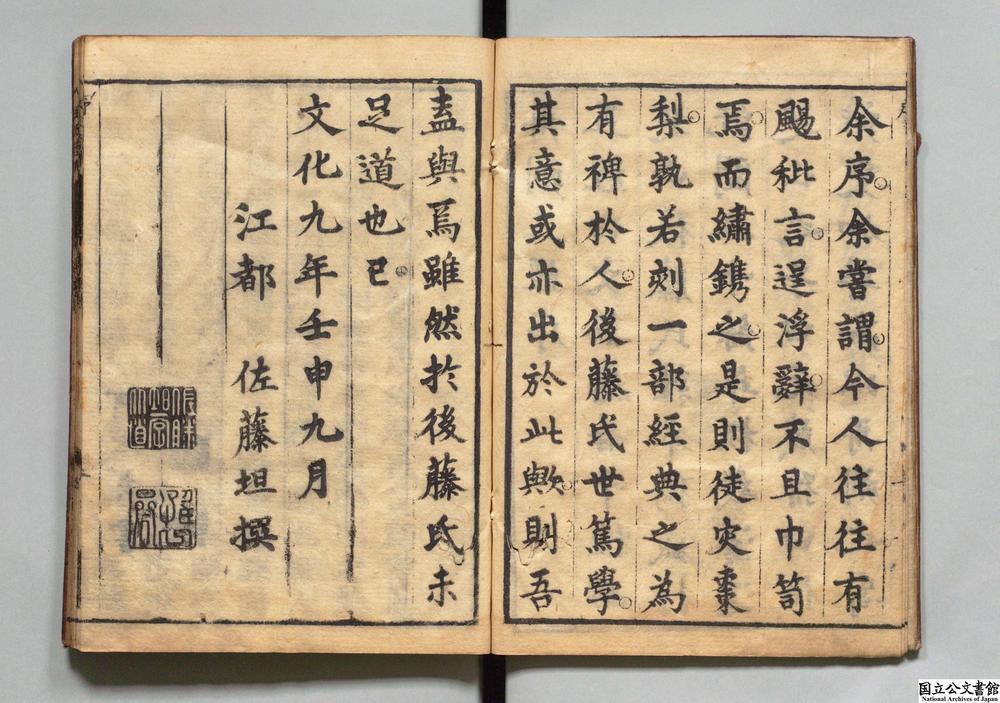 余序余嘗謂今人往往有
颺秕言逞浮辭不且巾笥
焉而繡鐫之是則徒灾棗
梨孰若刻一部經典之為
有裨於人後藤氏世篤學
其意或亦出於此歟則吾
盍與焉雖然於後藤氏未
足道也已
文化九年壬申九月
江都 佐藤坦撰
国立公文書館
National Archives of Japan